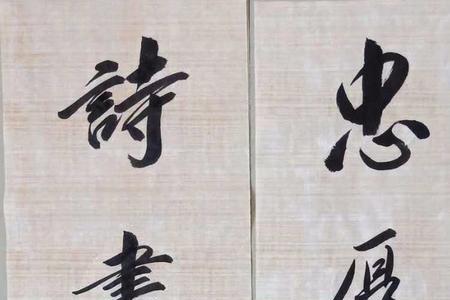 忠厚
詩書